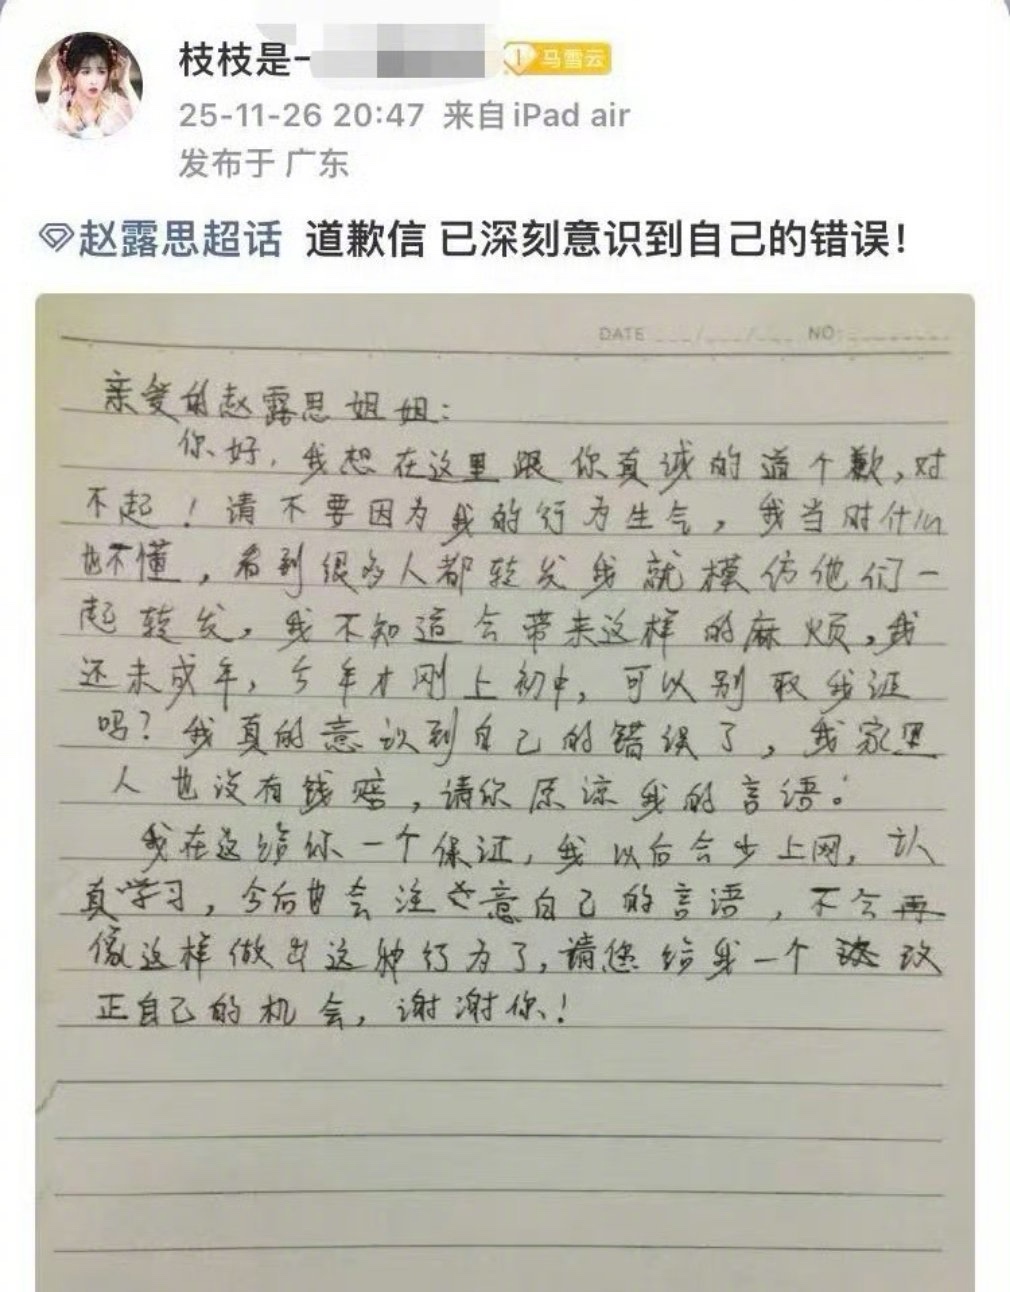 枝枝是一
马雪云
25-11-26 20:47 来自 iPad air
发布于 广东
赵露思超话 道歉信 已深刻意识到自己的错误！
DATE / / NO:
亲爱的赵露思姐姐：
你好，我想在这里跟你真诚的道个歉，对
不起！请不要因为我的行为生气，我当时什么
也不懂，看到很多人都转发我就模仿他们一
起转发，我不知道会带来这样的麻烦，我
还未成年，今年才刚上初中，可以别取我证
吗？我真的意识到自己的错误了，我家里
人也没有钱赔，请你原谅我的言语。
我在这给你一个保证，我以后会少上网，认
真学习，今后也会注意自己的言语，不会再
像这样做出这种行为了，请您给我一个改
正自己的机会，谢谢你！